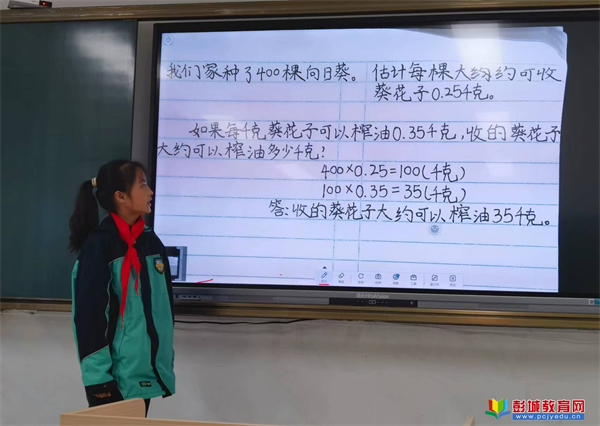 我们家种了400棵向日葵。
估计每棵大约约可收
葵花子0.25千克。
如果每千克葵花子可以榨油0.35千克,收的葵花子
大约可以榨油多少千克?
400×0.25=100(千克)
100×0.35=35(千克)
答:收的葵花子大约可以榨油35千克。
彭城教育网
www.pcjyedu.cn